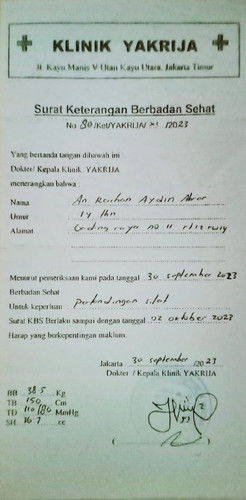 KLINIK YAKRIJA
Jl. Kayu Manis V Utan Kayu Utara, Jakarta Timur
Surat Keterangan Berbadan Sehat
No 80/Ket/YAKRIJA/ /2023
Yang bertanda tangan dibawah ini
Dokter/ Kepala Klinik YAKRIJA
menerangkan bahwa :
Nama An. Raihan Aydin
Umur 14 thn
Alamat Gading raya no 11
Menurut pemeriksaan kami pada tanggal 30 september 2023
Berbadan Sehat
Untuk keperluan Pertandingan silat
Surat KBS Berlaku sampai dengan tanggal 02 oktober 2023
Harap yang berkepentingan maklum.
Jakarta 30 september /2023
Dokter / Kepala Klinik YAKRIJA
BB 38.5 Kg
TB 150 Cm
TD 110/80 MmHg
36.7 cc
( )